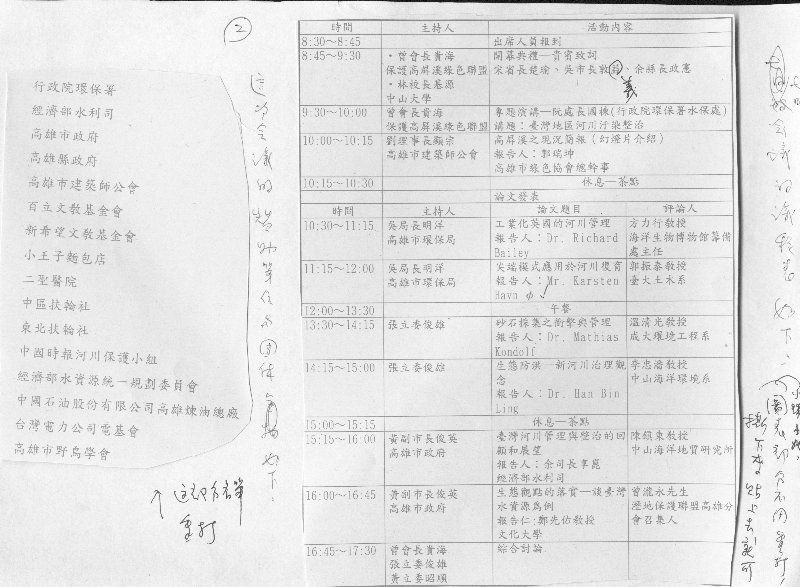 ②
行政院環保署
經濟部水利司
高雄市政府
高雄縣政府
高雄市建築師公會
百立文教基金會
新希望文教基金會
小王子麵包店
二聖醫院
中區扶輪社
東北扶輪社
中國時報河川保護小組
經濟部水資源統一規劃委員會
中國石油股份有限公司高雄煉油總廠
台灣電力公司電基會
高雄市野鳥學會
這次會議的贊助單位和團體 如下:
↑ 這部分名單
重打
時間 主持人 活動內容
8:30~8:45 出席人員報到
8:45~9:30 ‧曾會長貴海 開幕典禮—貴賓致詞
保護高屏溪綠色聯盟 宋省長楚瑜、吳市長敦 、余縣長政憲
‧林校長基源 義
中山大學
9:30~10:00 曾會長貴海 專題演講—阮處長國棟(行政院環保署水保處)
保護高屏溪綠色聯盟 講題:臺灣地區河川汙染整治
10:00~10:15 劉理事長顯宗 高屏溪之現況簡報(幻燈片介紹)
高雄市建築師公會 報告人:郭瑞坤
高雄市綠色協會總幹事
10:15~10:30 休息—茶點
論文發表
時間 主持人 論文題目 評論人
10:30~11:15 吳局長明洋 工業化英國的河川管理 方力行教授
高雄市環保局 報告人:Dr. Richard 海洋生物博物館籌備
Bailey 處主任
11:15~12:00 吳局長明洋 尖端模式應用於河川復育 郭振泰教授
高雄市環保局 報告人:Mr. Karsten 臺大土木系
Havn φ
12:00~13:30 午餐
13:30~14:15 張立委俊雄 砂石採集之衝擊與管理 溫清光教授
報告人:Dr. Mathias 成大環境工程系
Kondolf
14:15~15:00 張立委俊雄 生態防洪—新河川治理觀 李忠潘教授
念 中山海洋環境系
報告人:Dr. Han Bin
Ling
15:00~15:15 休息—茶點
15:15~16:00 黃副市長俊英 臺灣河川管理與整治的回 陳鎮東教授
高雄市政府 顧和展望 中山海洋地質研究所
報告人:余司長享崑
經濟部水利司
16:00~16:45 黃副市長俊英 生態觀點的落實—談臺灣 曾瀧永先生
高雄市政府 水資源為例 溼地保護聯盟高雄分
報告仁:鄭先佑教授 會召集人
文化大學
16:45~17:30 曾會長貴海 綜合討論
張立委俊雄
黃立委昭順
會議的議程 如下:
(圖表部分不用重打,
撕下來貼上去就可